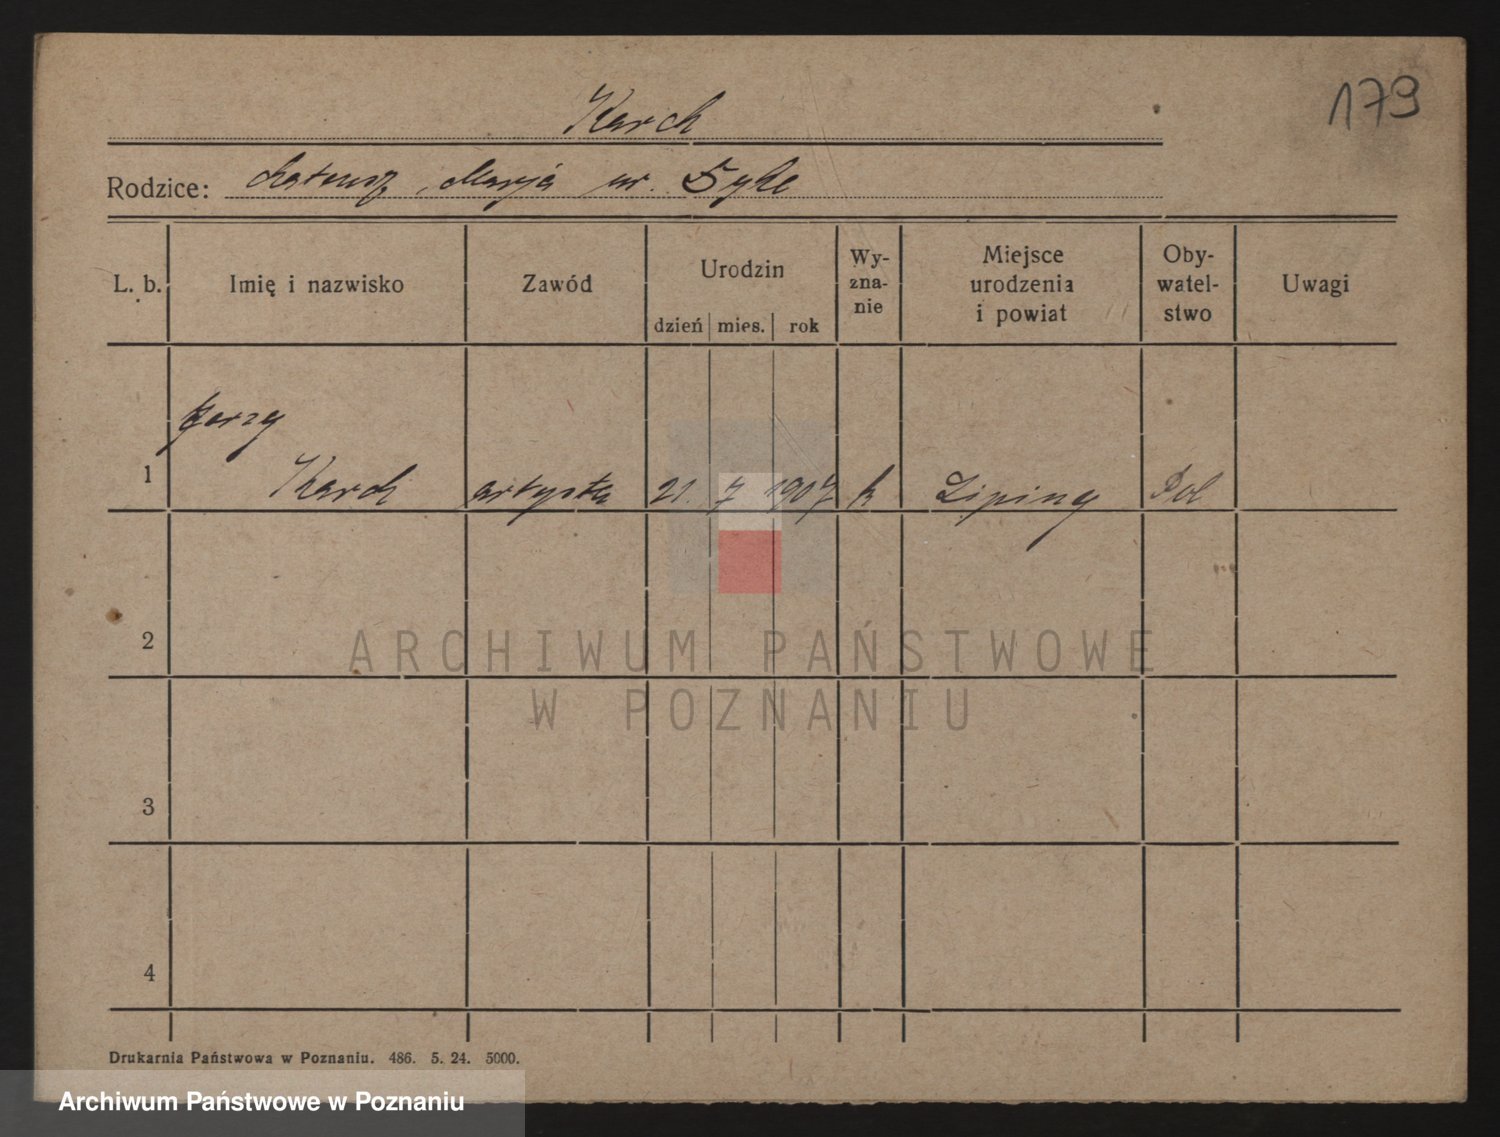 179
Karch
Rodzice: Mateusz, Marja ur. Syke
L. b. Imię i nazwisko Zawód Urodzin dzień mies. rok Wy-zna-nie Miejsce urodzenia i powiat Oby-watel-stwo Uwagi
Jerzy
1 Karch artysta 21. 7 1907 k Liping Pol
2
3
4
Drukarnia Państwowa w Poznaniu. 486. 5. 24. 5000.
ARCHIWUM PAŃSTWOWE
W POZNANIU
Archiwum Państwowe w Poznaniu